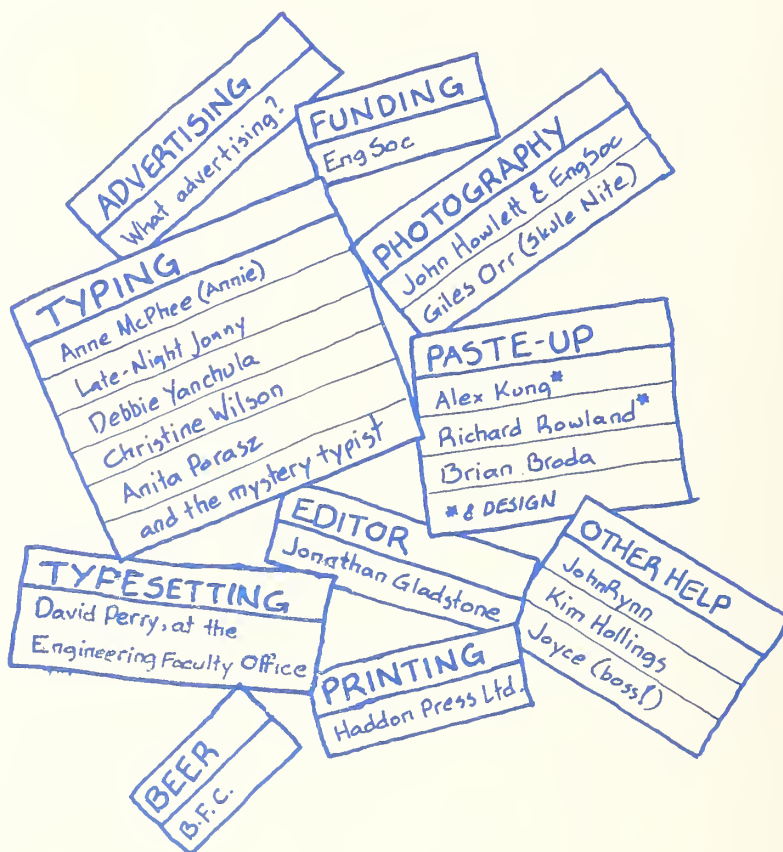 ADVERTISING
What advertising?
FUNDING
EngSoc
PHOTOGRAPHY
John Howlett & EngSoc
Giles Orr (Skule Nite)
TYPING
Anne McPhee (Annie)
Late-Night Jonny
Debbie Yanchula
Christine Wilson
Anita Porasz
and the mystery typist
PASTE-UP
Alex Kung*
Richard Rowland*
Brian Broda
* & DESIGN
EDITOR
Jonathan Gladstone
OTHER HELP
John Rynn
Kim Hollings
Joyce (boss!)
TYPESETTING
David Perry, at the
Engineering Faculty Office
PRINTING
Haddon Press Ltd.
BEER
B.F.C.